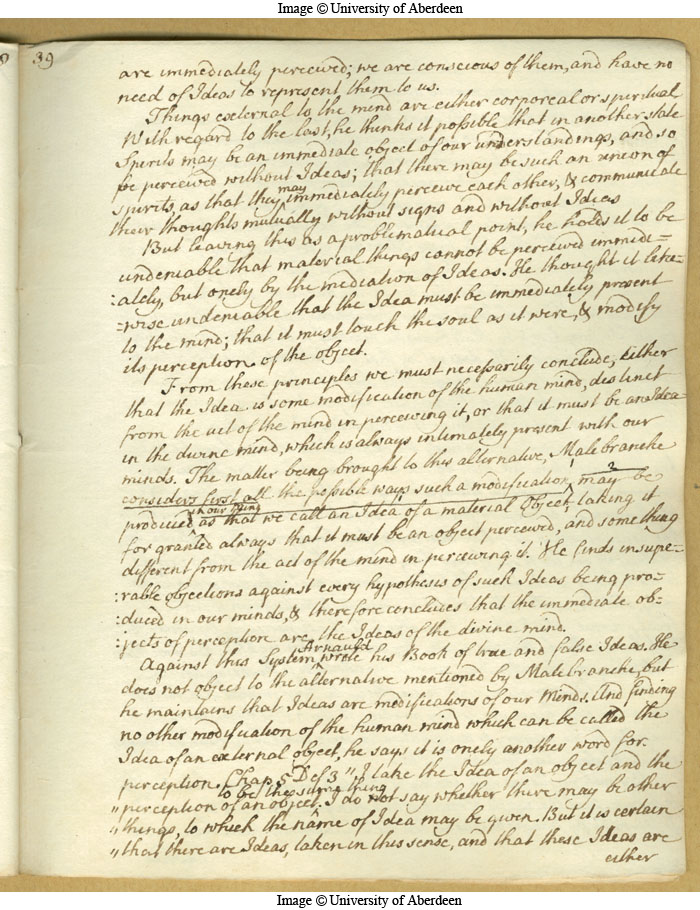 Image © University of Aberdeen
39
are immediately perceived; we are conscious of them, and have no
need of Ideas to represent them to us.
Things external to the mind are either corporeal or spiritual
With regard to the last, he thinks it possible that in another state
Spirits may be an immediate object of our understandings, and so
be perceived without Ideas; that there may be such an union of
spirits, as that they may immediately perceive each other, & communicate
their thoughts mutually without signs and without Ideas
But leaving this as a problematical point, he holds it to be
undeniable that material things cannot be perceived immedi=
:ately, but onely by the mediation of Ideas. He thought it like=
=wise undeniable that the Idea must be immediately present
to the mind; that it must touch the soul as it were, & modify
its perception of the object.
From these principles we must necessarily conclude, Either
that the Idea is some modification of the human mind, distinct
from the act of the mind in perceiving it, or that it must be an Idea
in the divine mind, which is always intimately present with our
minds. The matter being brought to this alternative, Malebranche
considers first all the possible ways such a modification may be
produced in our mind as that we call an Idea of a material Object, taking it
for granted always that it must be an object perceived, and something
different from the act of the mind in perceiving it. He finds insupe=
:rable objections against every hypothesis of such Ideas being pro=
:duced in our minds, & therefore concludes that the immediate ob=
:jects of perception are the Ideas of the divine mind.
Against this System Arnauld wrote his Book of true and false Ideas. He
does not object to the alternative mentioned by Malebranche, but
he maintains that Ideas are modifications of our Minds. And finding
no other modification of the human mind which can be called the
Idea of an external object, he says it is onely another word for
perception. Chap 5 Def 3 " I take the Idea of an object and the
" perception of an object to be the same thing. I do not say whether there may be other
" things, to which the name of Idea may be given. But it is certain
" that there are Ideas, taken in this sense, and that these Ideas are
either
Image © University of Aberdeen